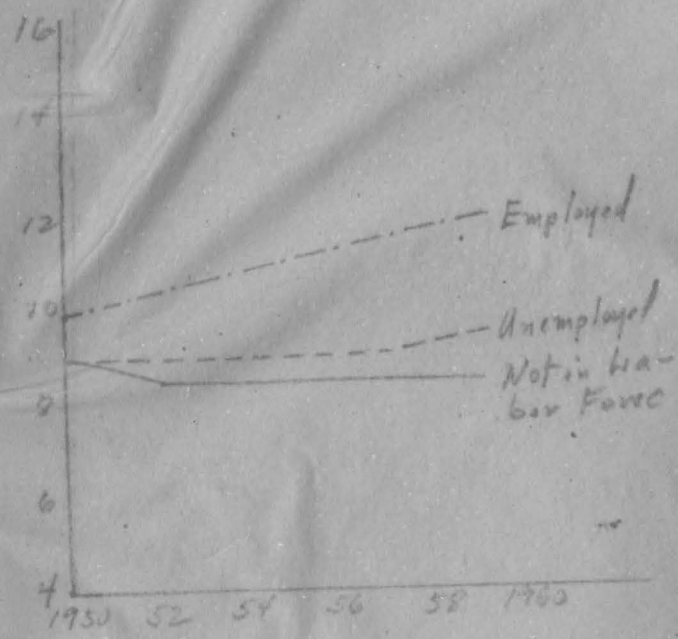 16
14
12
10
8
6
4
Employed
Unemployed
Not in La-
bor Force
1950 52 54 56 58 1960